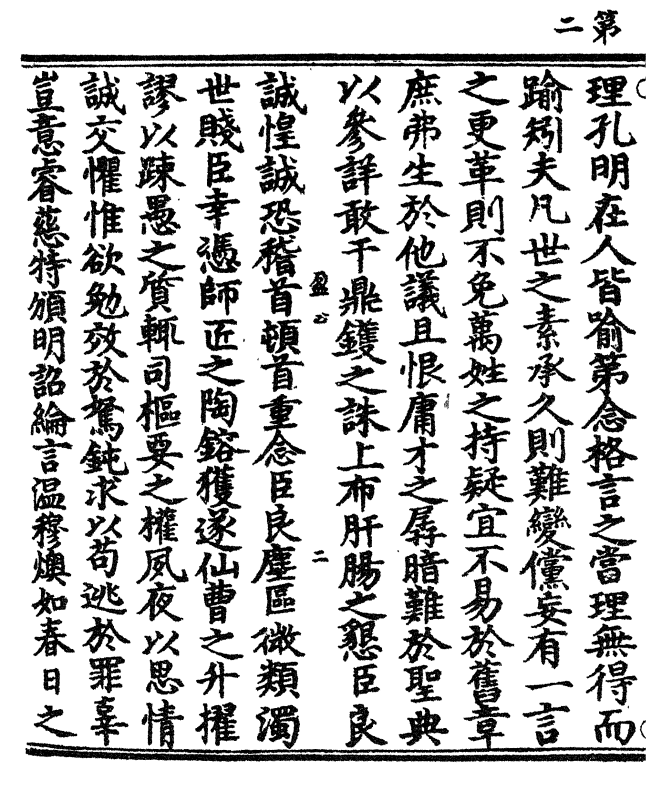 第二
理孔明在人皆喻第念格言之當理無得而
踰矧夫凡世之素承久則難變儻妄有一言
之更革則不免萬姓之持疑宜不易於舊章
庶弗生於他議且恨庸才之孱暗難於聖典
以參詳敢干鼎鑊之誅上布肝腸之懇臣良
盈 二
誠惶誠恐稽首頓首重念臣良塵區微類濁
世賤臣幸憑師匠之陶鎔獲遂仙曹之升擢
謬以踈愚之質輒司樞要之權夙夜以思情
誠交懼惟欲勉效於駑鈍求以苟逃於罪辜
豈意睿慈特頒明詔綸言溫穆燠如春日之